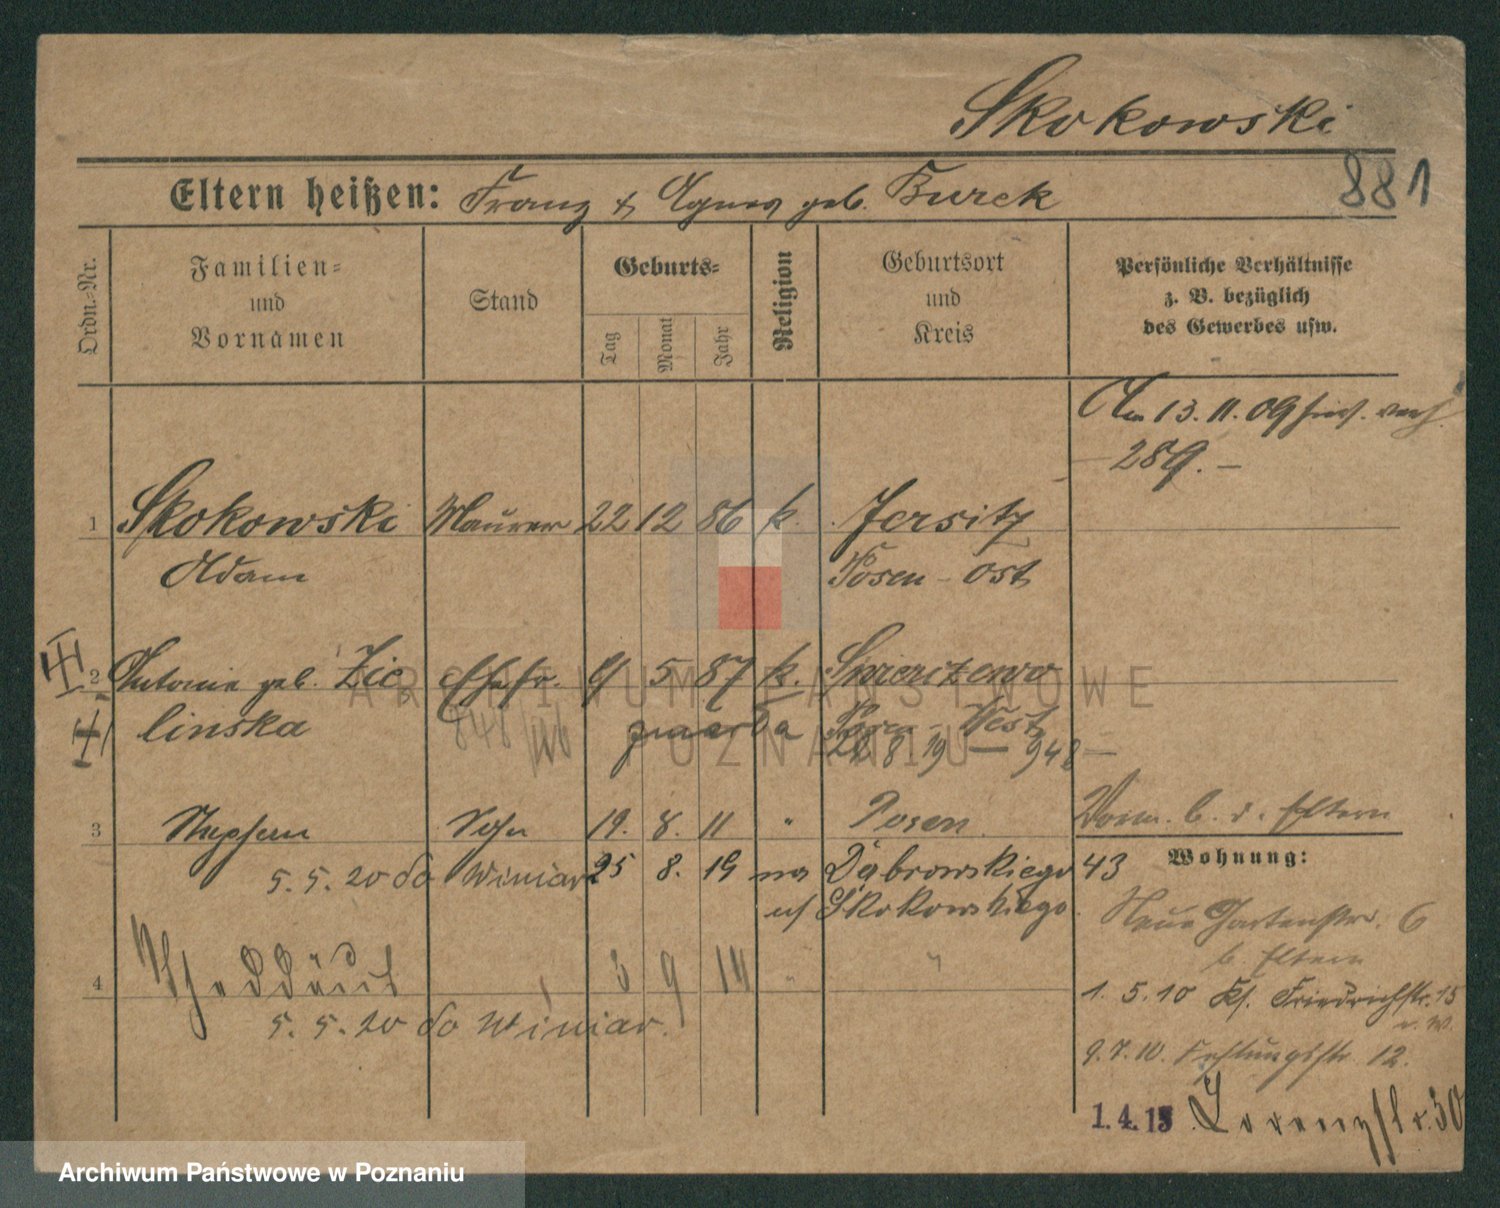 Skokowski
881
Eltern heißen: Franz & Agnes geb. Burek
Ordn.=Nr.
Familien=
und
Vornamen
Stand
Geburts=
Tag
Monat
Jahr
Religion
Geburtsort
und
Kreis
Persönliche Verhältnisse
z. B. bezüglich
des Gewerbes usw.
Am 13. 11. 09
289.
1 Skokowski Maurer 22 12 86 k. Jersitz
Adam Posen - Ost
2 Antonie geb. Zie Ehefr. 9 5 87 k. Swierczewo
linska Posen - West
848
zmarła 22 8 19 — 948 —
3 Stephan Sohn 19. 8. 11 " Posen.
Wohn. b. d. Eltern
5. 5. 20 do Winiar 25 8. 19 na Dąbrowskiego 43
u/ Skokowskiego.
Wohnung:
Neue Gartenstr. 6
b. Eltern
4 Thaddäus 3 9 14 " "
5. 5. 20 do Winiar.
1. 5. 10 Ks. Friedrichstr. 15
9. 7. 10. Festungsstr. 12.
1. 4. 15 Lorenzstr. 30
ARCHIWUM PAŃSTWOWE
W POZNANIU
Archiwum Państwowe w Poznaniu